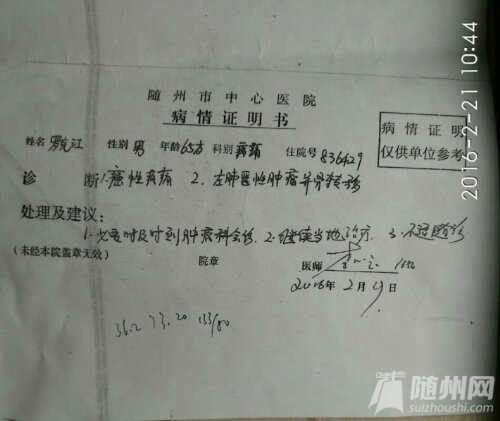 随州市中心医院
病情证明书
病情证明
仅供单位参考
姓名 江 性别 男 年龄 65岁 科别 疼痛 住院号 836429
诊 断 1.癌性疼痛 2.左肺恶性肿瘤并骨转移
处理及建议:
1.必要时及时到肿瘤科会诊. 2.继续当地治疗. 3.不适随诊
(未经本院盖章无效) 院章 医师
2016年2月19日
36.2 73.20 133/80
2016-2-21 10:44
随州网
suizhoushi.com